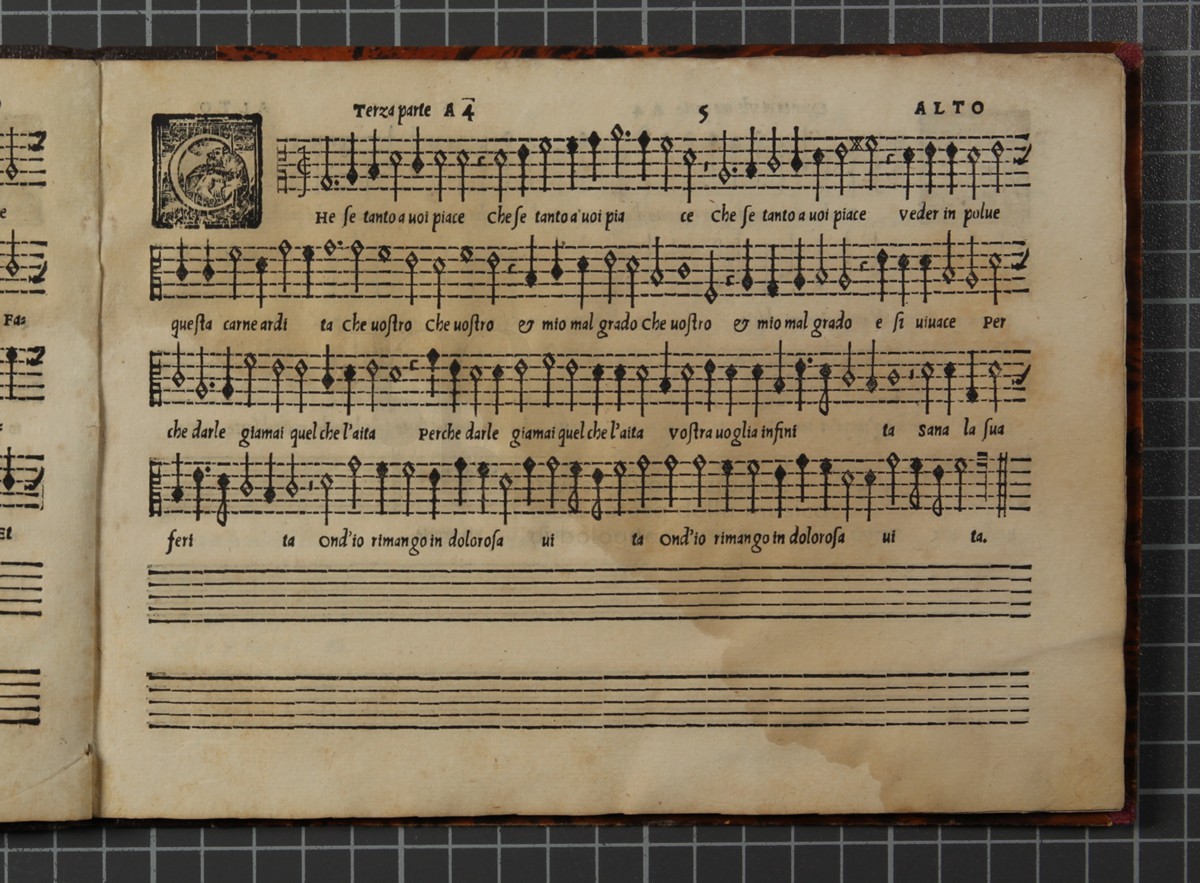 Terza parte A 4 5 ALTO
CHe se tanto a uoi piace Che se tanto a uoi pia ce Che se tanto a uoi piace Veder in polue
questa carne ardi ta Che uostro Che uostro & mio mal grado Che uostro & mio mal grado e si uiuace Per
che darle giamai quel che l'aita Perche darle giamai quel che l'aita Vostra uoglia infini ta Sana la sua
feri ta Ond'io rimango in dolorosa ui ta Ond'io rimango in dolorosa ui ta.
e
Fa=
Et